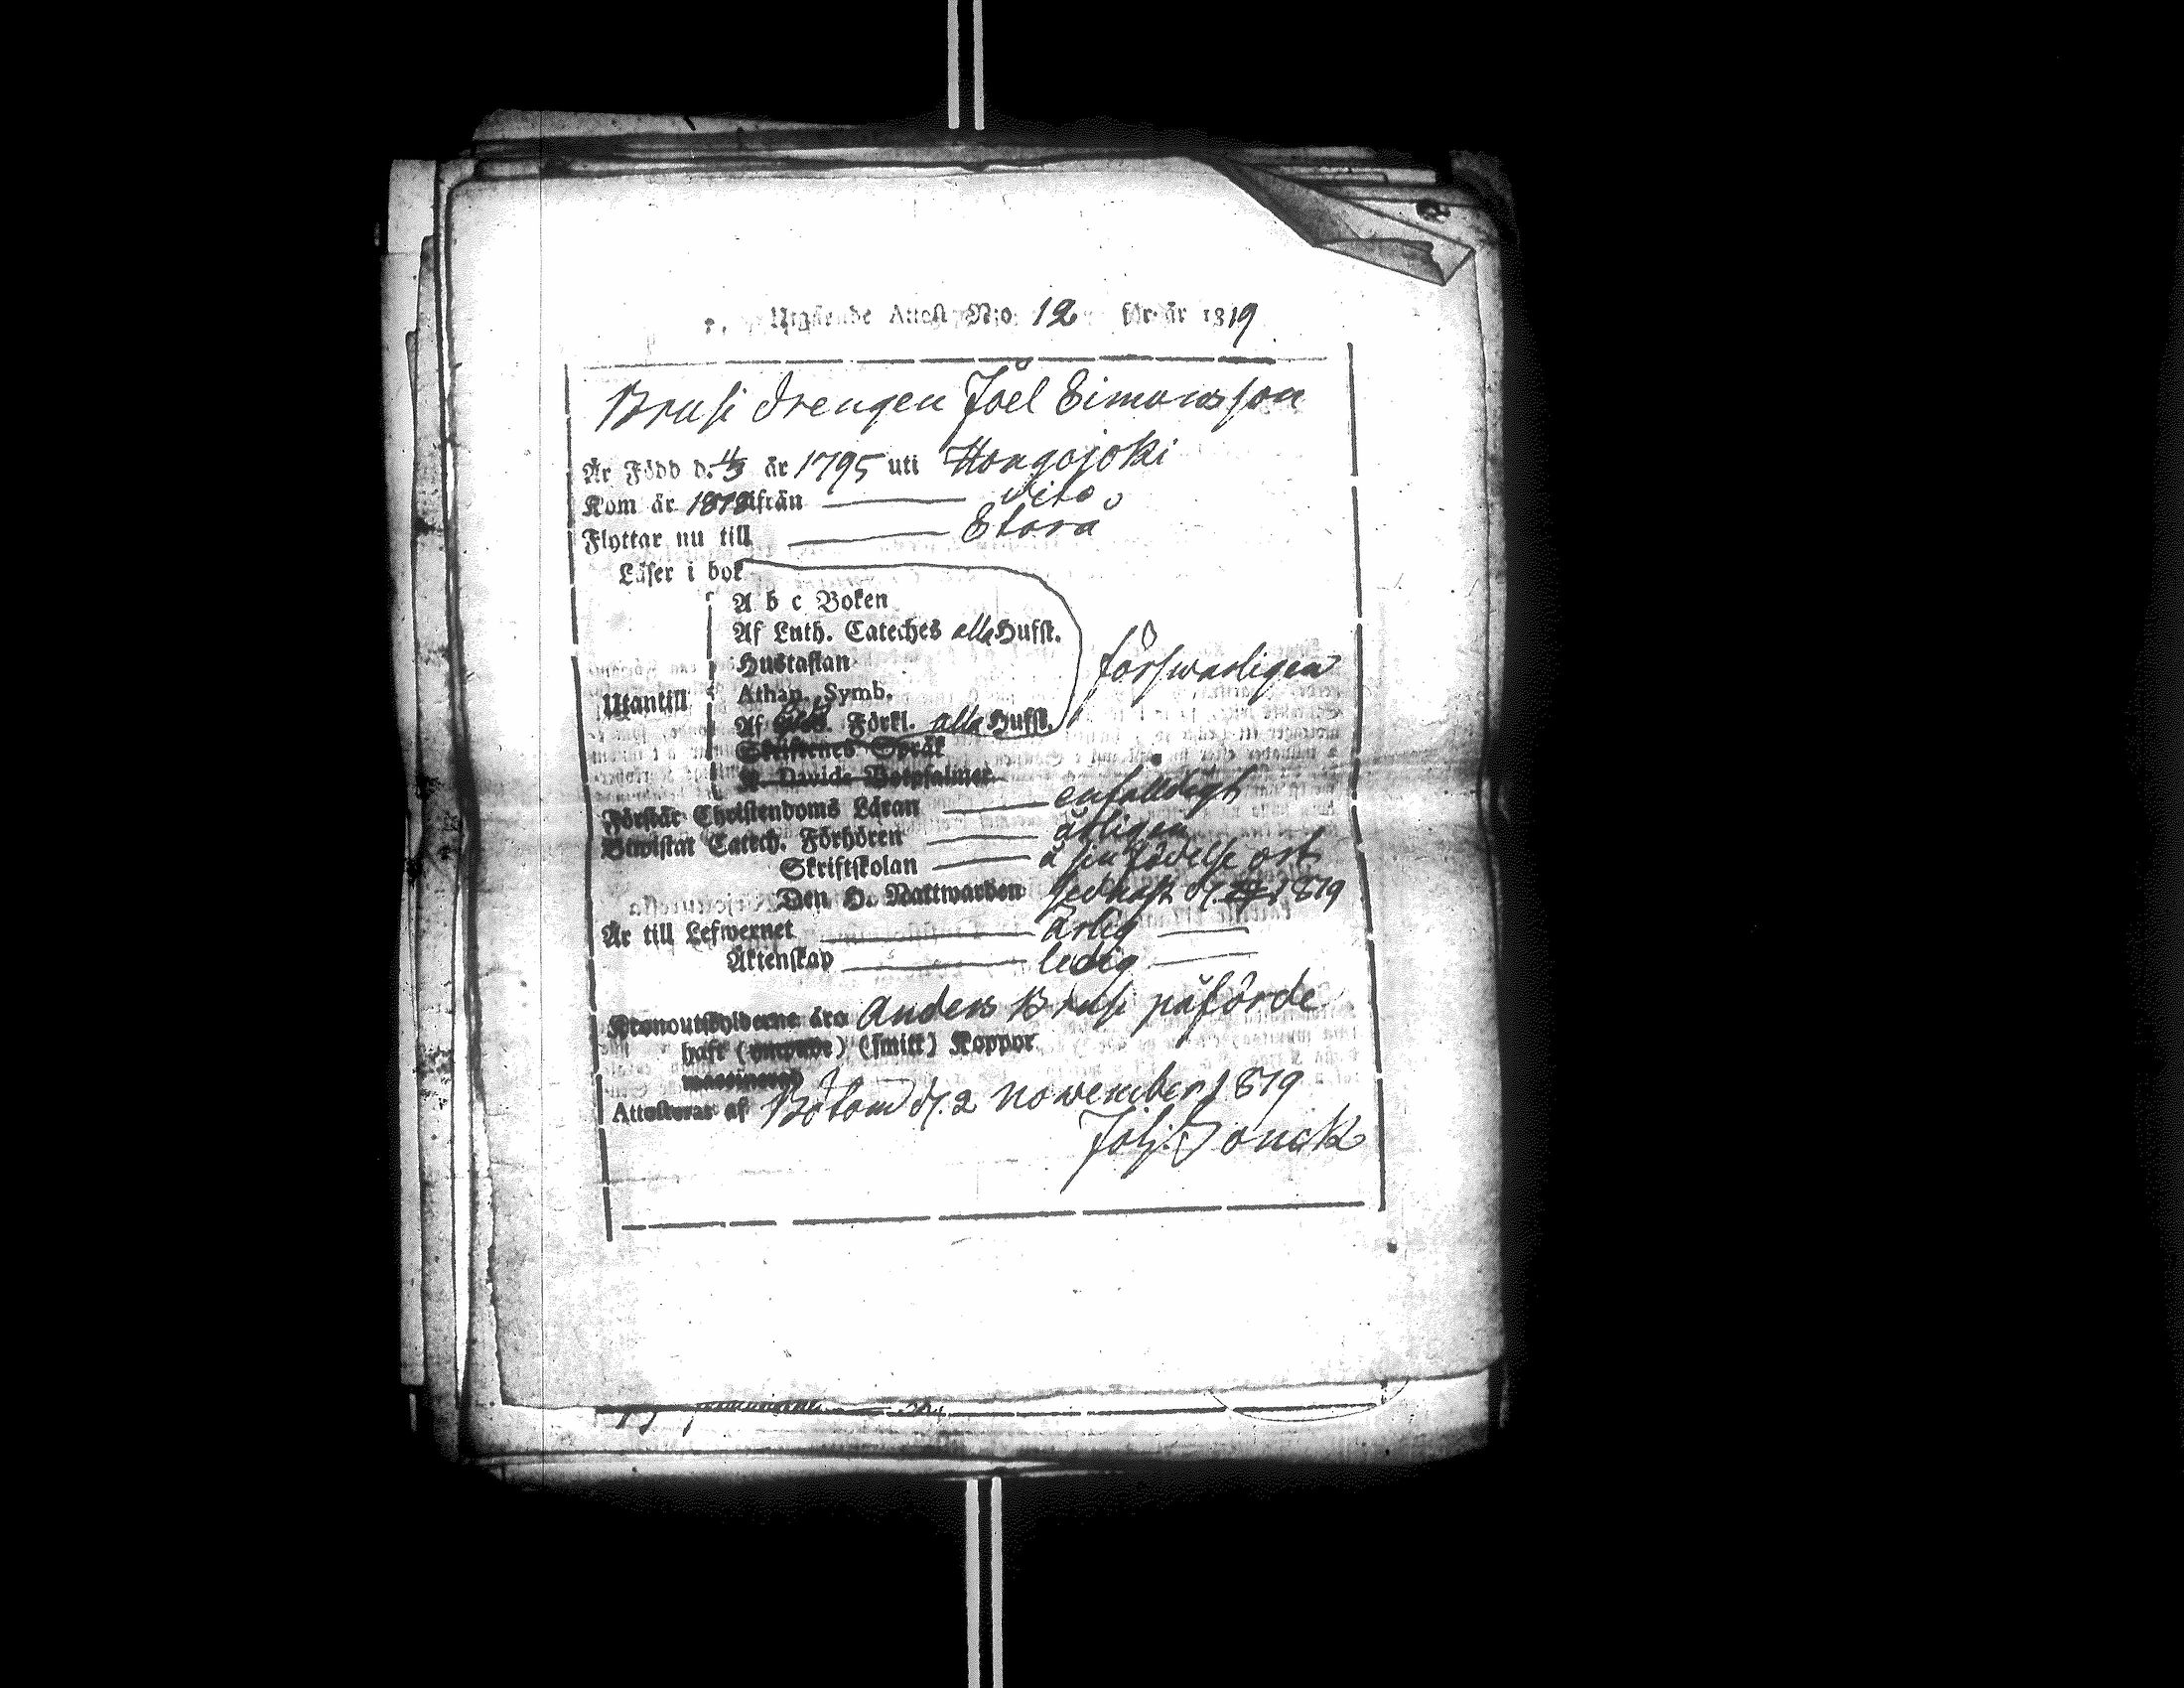 Utgående Attest N:o 12 för år 1819
Brusi drengen Joel Simonsson
Är Född d. 4/3 år 1795 uti Hongojoki
Kom år 1818 ifrån — dito
Flyttar nu till — Storå
Läser i bok
A b c Boken
Af Luth. Cateches alla Hufst.
Hustaflan
försvarligen
Utantill
Athan. Symb.
Af Förkl. alla Hufst.
Skriftenes Språk
K. Davids Botpsalmer
Förstår Christendoms Läran — enfaldigt
Biwistat Catech. Förhören — årligen
Skriftskolan — å sin födelse ort
Den H. Nattwarden sednast d. 1819
Är till Lefwernet — ärlig —
Äktenskap — ledig —
Kronoutskylderne äro Anders Brusi påförde
haft (ympade) (smitt) Koppor
vaccinerad
Attesteras af Bötom d. 2 November 1819
Joh: Jonck